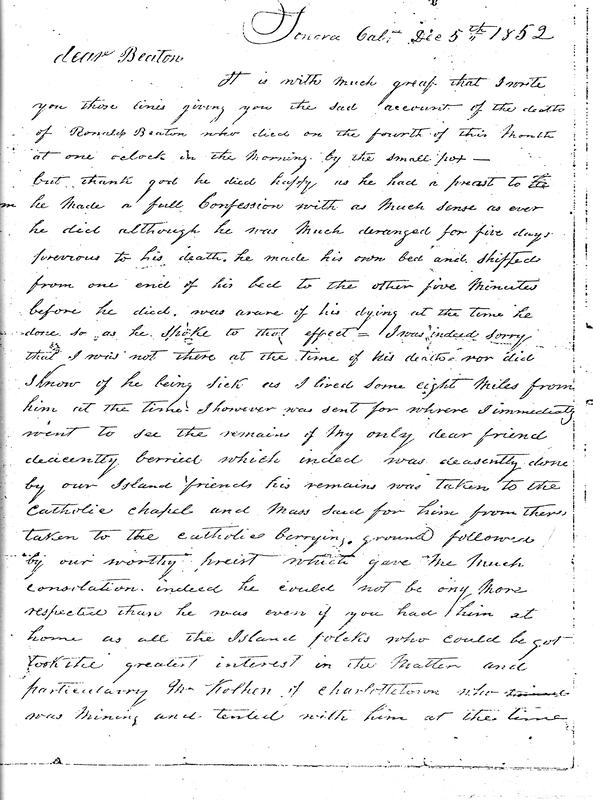 Sonora Cal. Dec 5th 1852
dear Beaton
It is with much greaf that I write
you those lines giving you the sad account of the death
of Ronald Beaton who died on the fourth of this Month
at one oclock in the Morning by the small pox —
but thank god he died happy as he had a preast to
he Made a full Confession with as Much sense as ever
he did although he was Much deranged for five days
previous to his death, he made his own bed and shifted
from one end of his bed to the other five Minutes
before he died. was aware of his dying at the time he
done so as he spoke to that effect = I was indeed sorry
that I was not there at the time of his death nor did
I know of he being sick as I lived some eight Miles from
him at the time. I however was sent for where I immediatly
went to see the remains of My only dear friend
deicently berried which indeed was deasently done
by our Island friends his remains was taken to the
Catholic chapel and Mass said for him from there
taken to the catholic berrying ground followed
by our worthy preist which gave Me Much
consilation. indeed he could not be ony More
respected than he was even if you had him at
home as all the Island folcks who could be got
took the greatest interest in the Matter and
particularry Mr of charlottetown who
was Mining and tented with him at the time